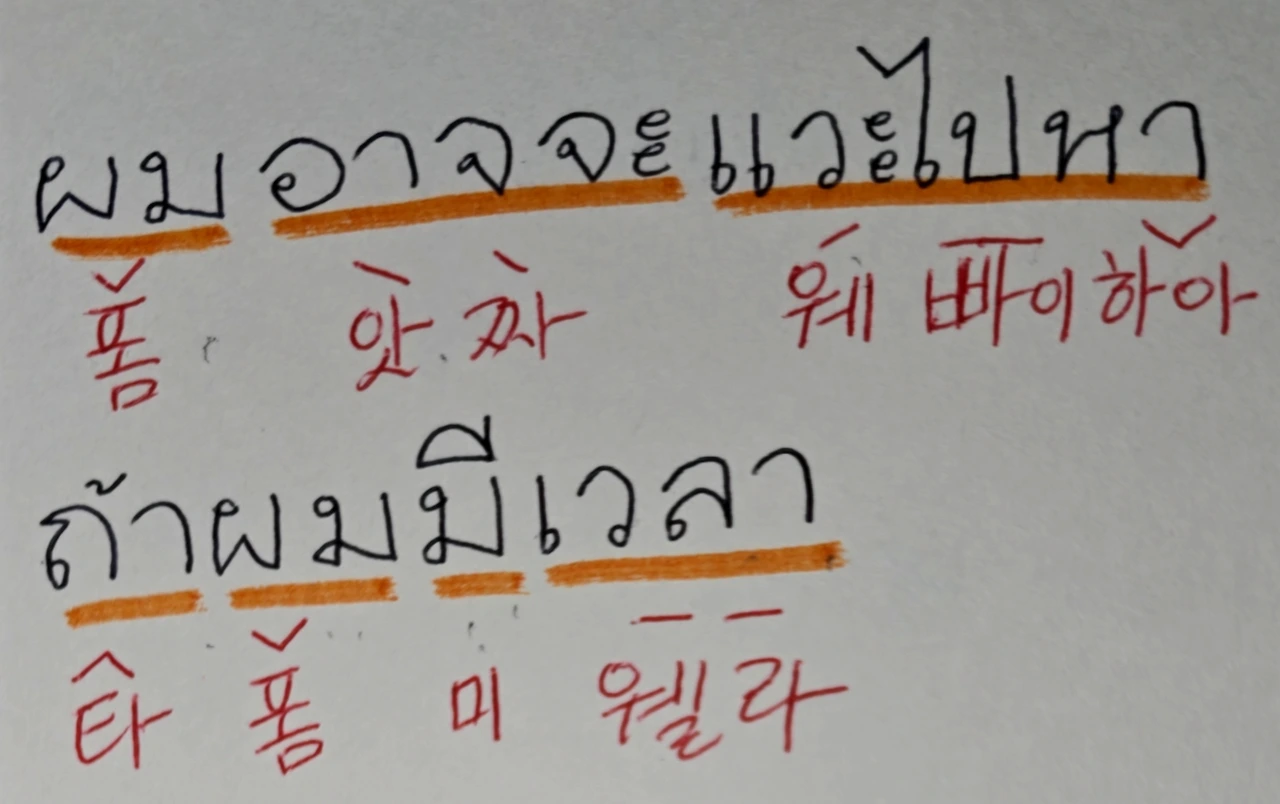 ผมอาจจะแวะไปหา
폼 앋 짜 웨 빠이하아
ถ้าผมมีเวลา
타 폼 미 웰라